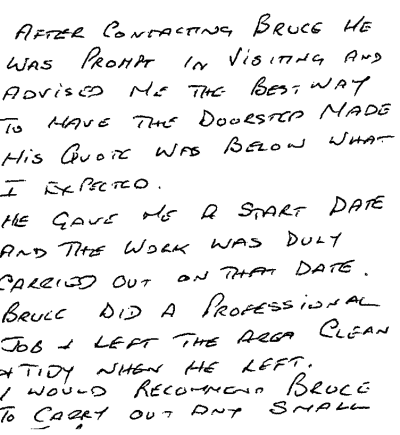 AFTER CONTACTING BRUCE HE
WAS PROMPT IN VISITING AND
ADVISED ME THE BEST WAY
TO HAVE THE DOORSTEP MADE
HIS QUOTE WAS BELOW WHAT
I EXPECTED.
HE GAVE ME A START DATE
AND THE WORK WAS DULY
CARRIED OUT ON THAT DATE.
BRUCE DID A PROFESSIONAL
JOB & LEFT THE AREA CLEAN
& TIDY WHEN HE LEFT.
I WOULD RECOMMEND BRUCE
TO CARRY OUT ANY SMALL